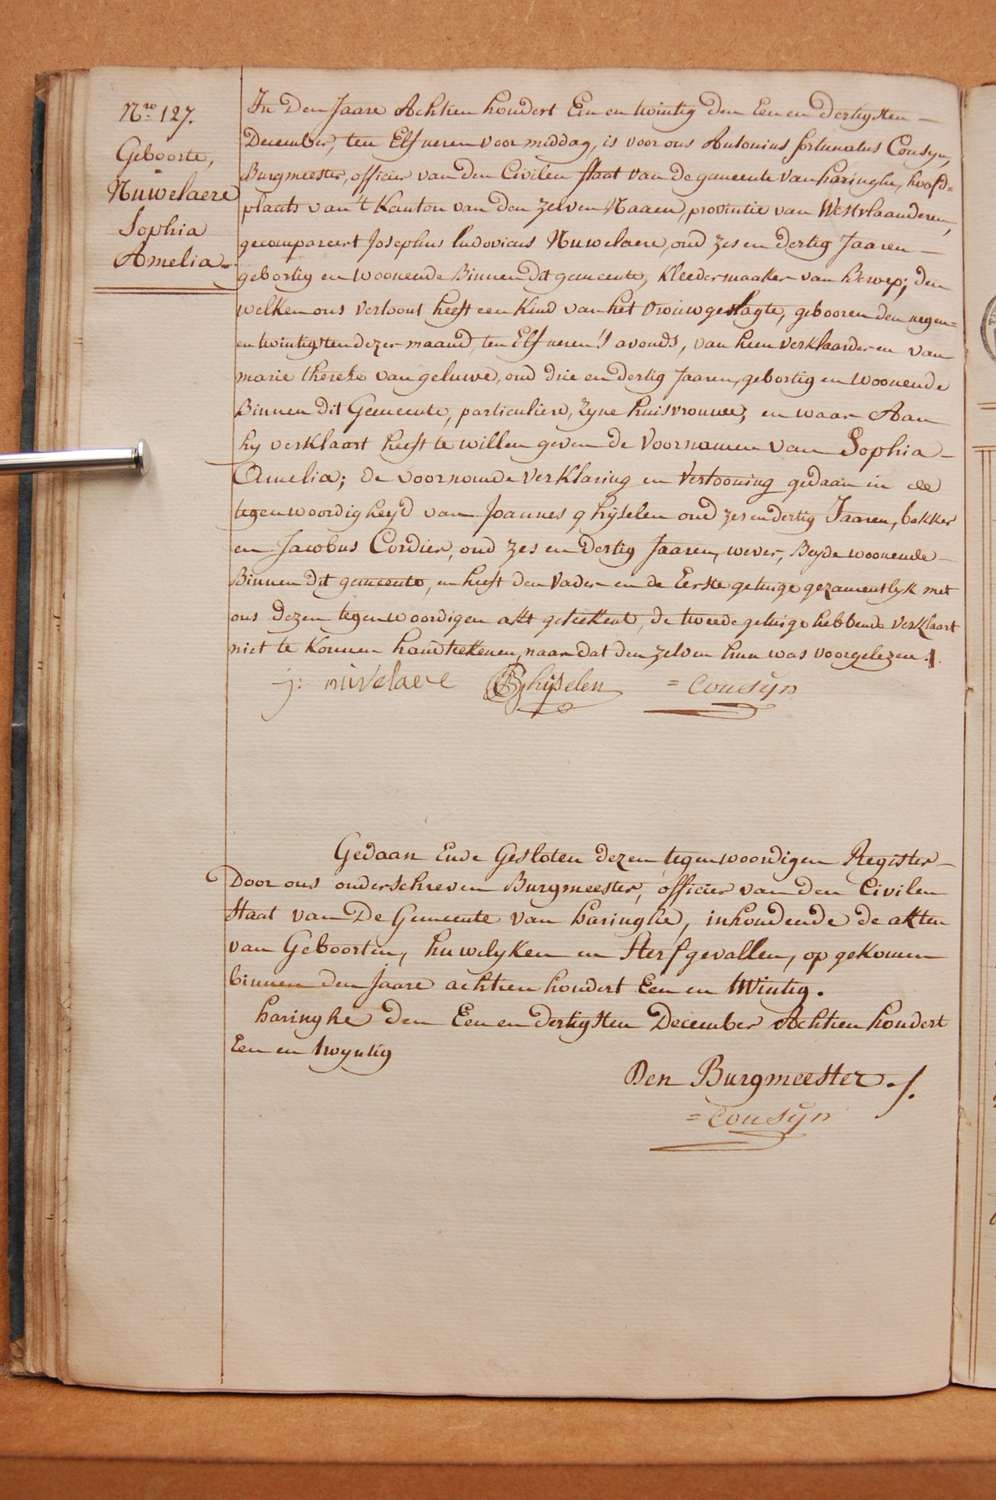 Nro. 127.
Geboorte,
Nuwelaere
Sophia
Amelia.
In Den Jaare Achtien hondert Een en twintig den Een en dertigsten
December, ten Elf ueren voor middag, is voor ons Antonius fortunatus Cousyn,
Burgmeester, officier van den Civilen staat van de gemeente van haringhe, hoofd-
plaats van 't Kanton van den zelven Naaem, provintie van Westvlaanderen,
gecompareert Josephus ludovicus Nuwelaere, oud zes en dertig Jaaren
gebortig en wooneende Binnen dit gemeente, kleedermaaker van Beroep; den
welken ons vertoont heeft een kind van het vrouwgeslagte, gebooren den negen-
en twintigsten dezer maand, ten Elf ueren 's avonds, van hem verklaarder en van
marie therese van geluwe, oud drie en dertig Jaaren, gebortig en woonende
Binnen dit Gemeente, particuliere, zyne huisvrouwe, en waar Aan
hy verklaart heeft te willen geven de Voornamen van Sophia
Amelia; de voornoemde verklaring en vertooning gedaan in de
tegenwoordigheyd van Joannes ghyselen oud zes en dertig Jaaren, bekker
en Jacobus Cordier, oud zes en dertig Jaaren, wever, Beyde woonende
Binnen dit gemeente, en heeft den Vader en de Eerste getuige gezamentlyk met
ons dezen tegenwoordigen akt geteekent, de tweede getuige hebbende verklaart
niet te konnen handtekenen, naar dat den zelven hun was voorgelezen.
j: nuvelaere Ghyselen = Cousyn
Gedaan Ende Gesloten dezen tegenwoordigen Register
Door ons onderschreven Burgmeester, officier van den Civilen
Staat van De Gemeente van haringhe, inhoudende de akten
van Geboorten, huwelyken en sterfgevallen, opgekomen
binnen den Jaare achtien hondert Een en twintig.
haringhe den Een en dertigsten December Achtien hondert
Een en twyntig
Den Burgmeester.
= Cousyn